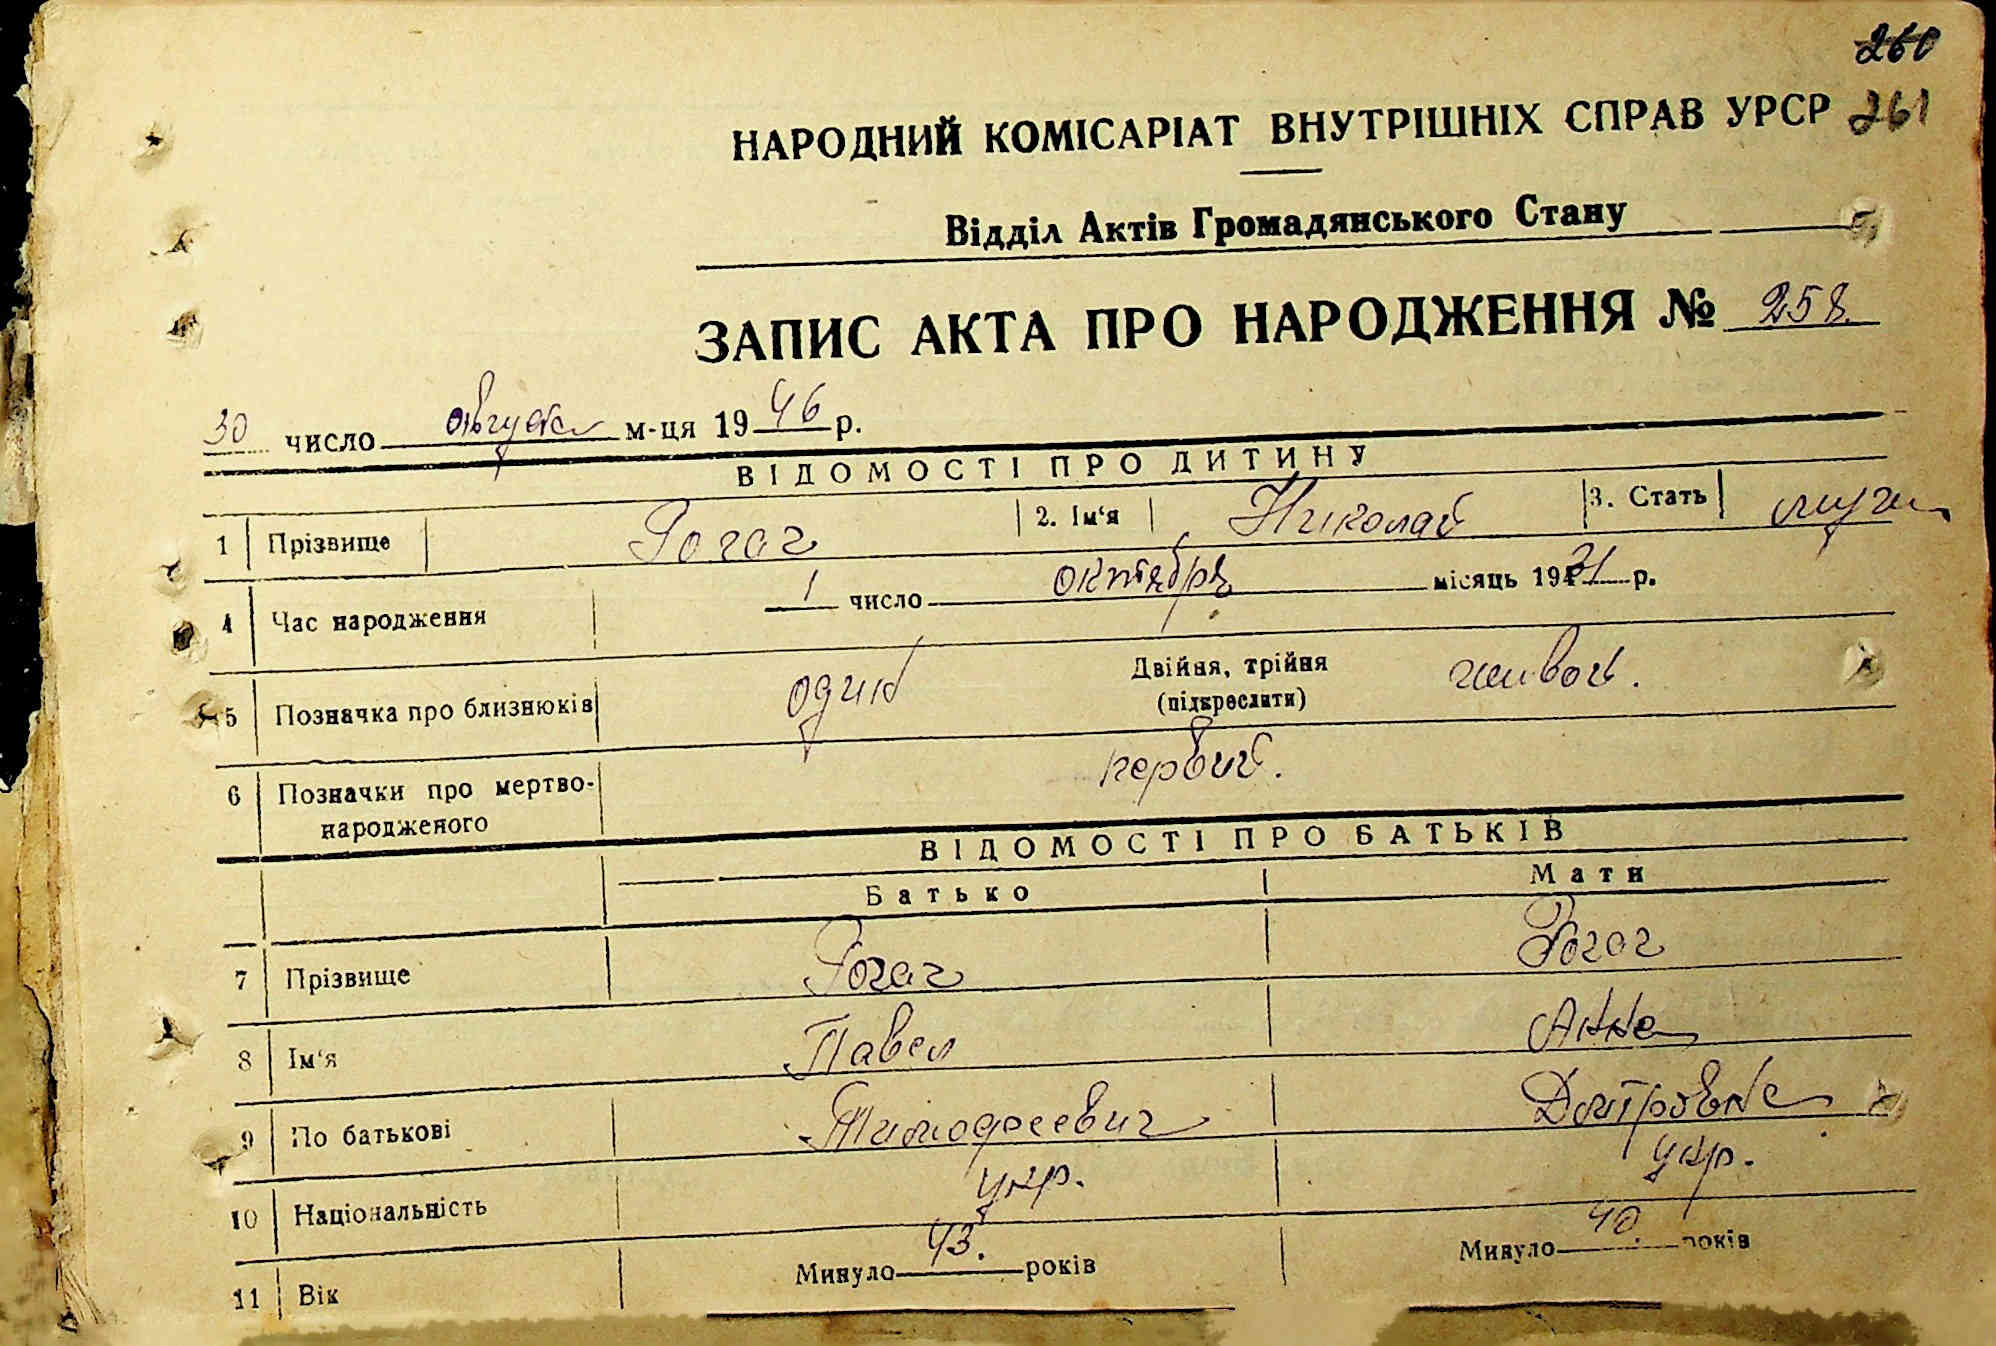 260
НАРОДНИЙ КОМІСАРІАТ ВНУТРІШНІХ СПРАВ УРСР 261
Відділ Актів Громадянського Стану
ЗАПИС АКТА ПРО НАРОДЖЕННЯ № 258.
30 число августа м-ця 1946 р.
ВІДОМОСТІ ПРО ДИТИНУ
1 Прізвище Рогач 2. Ім'я Николай 3. Стать муж
4 Час народження 1 число октября місяць 1931 р.
5 Позначка про близнюків один Двійня, трійня живой.
(підкреслити)
6 Позначки про мертво- первий.
народженого
ВІДОМОСТІ ПРО БАТЬКІВ
Батько Мати
7 Прізвище Рогач Рогач
8 Ім'я Павел Анна
9 По батькові Тимофеевич Дмитровна
10 Національність укр. укр.
11 Вік Минуло 43. років Минуло 40. років